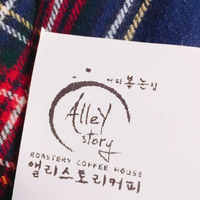 커피볶는집
Alley
story
ROASTERY COFFEE HOUSE
앨리스토리커피